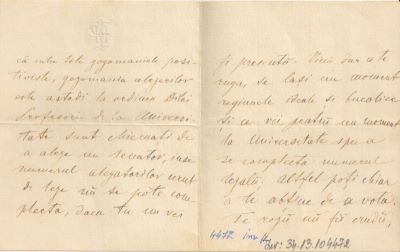 că intre tote gogomaniele posi-
tiviste, gogomania alegerilor
este astadi la ordinea Dilei
Profesorii de la Universi-
tate sunt chiemati de
a alege un Senator, inse
numerul alegatorilor cerut
de lege nu se pote com-
plecta, daca tu nu vei
fi presentu. Vinu dar a te
ruga, se lasi un moment
regiunele ideale si bucolice
si a vii pentru un moment
la Universitate spre a
se complecta numerul
legalu. altfel poti chiar
a te abtine de a vota.
Te rogu nu fii crudu,
4472 inv.
34.13.104472